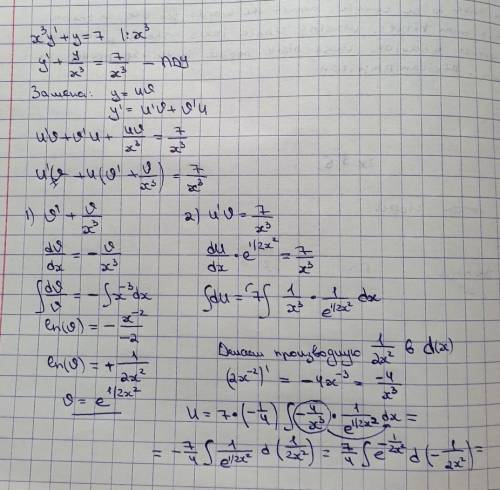 x³y' + y = 7 |: x³
y' + y/x³ = 7/x³ – ЛДУ
Замена: y = uϑ
y' = u'ϑ + ϑ'u
u'ϑ + ϑ'u + uϑ/x³ = 7/x³
u'ϑ + u(ϑ' + ϑ/x³) = 7/x³
1) ϑ' + ϑ/x³
dϑ/dx = - ϑ/x³
∫ dϑ/ϑ = - ∫ x⁻³ dx
ln(ϑ) = - x⁻²/-2
ln(ϑ) = + 1/2x²
ϑ = e^(1/2x²)
2) u'ϑ = 7/x³
du/dx · e^(1/2x²) = 7/x³
∫du = 7∫ 1/x³ · 1/e^(1/2x²) dx
Делаем производную 1/2x² в d(x)
(2x⁻²)' = -4x⁻³ = -4/x³
u = 7·(-1/4) ∫ -4/x³ · 1/e^(1/2x²) dx =
= -7/4 ∫ 1/e^(1/2x²) d(1/2x²) = 7/4 ∫ e^(-1/2x²) d(-1/2x²) =